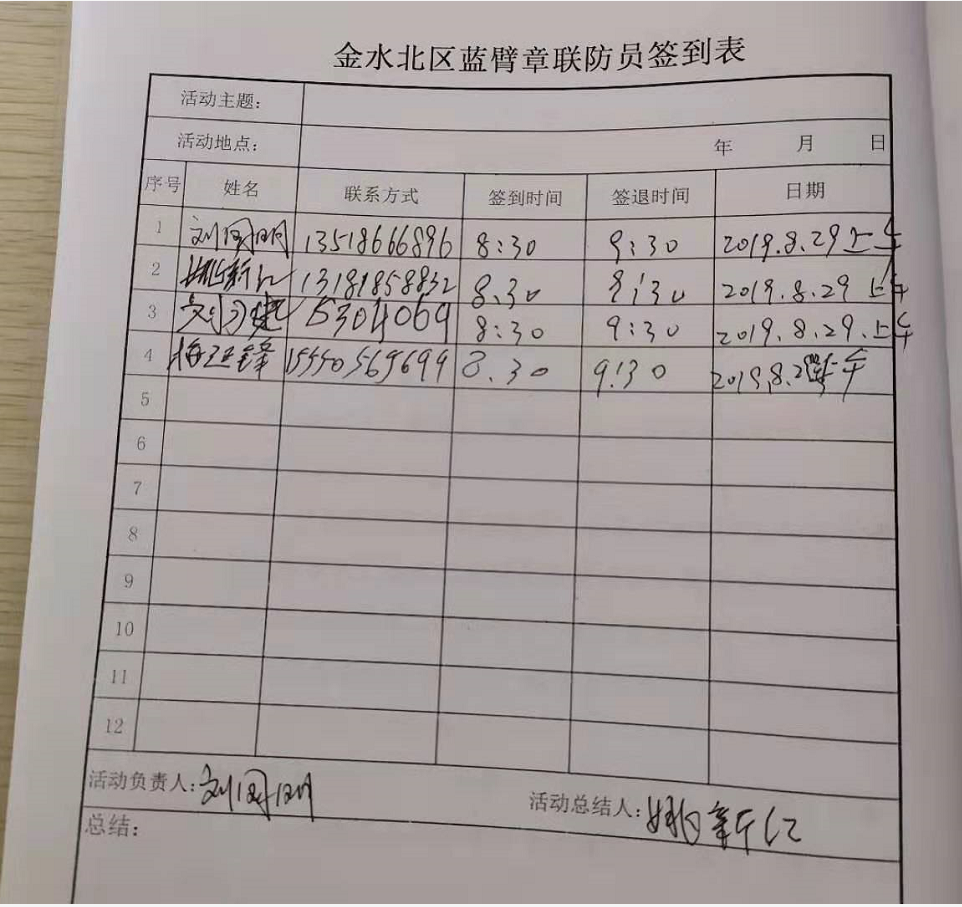 金水北区蓝臂章联防员签到表
活动主题：
活动地点： 年 月 日
序号 姓名 联系方式 签到时间 签退时间 日期
1 刘国明 13518666896 8:30 9:30 2019.8.29上午
2 姚新仁 13181858832 8.30 9:30 2019.8.29上午
3 8:30 9:30 2019.8.29.上午
4 15550569699 8.30 9:30 2019.8.29上午
5
6
7
8
9
10
11
12
活动负责人：刘国明 活动总结人：姚新仁
总结：